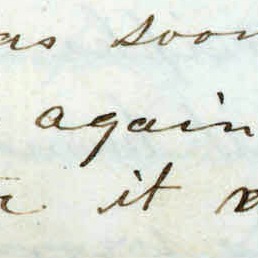 as soon
again
it